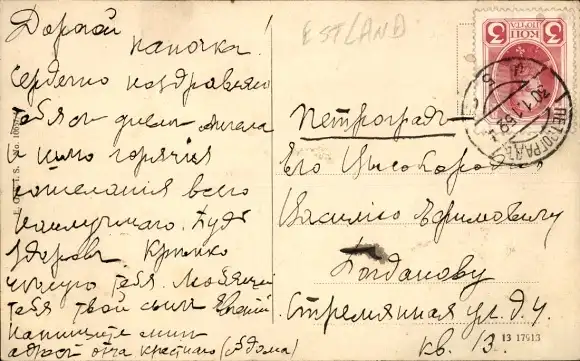 Дорогой
папочка!
Сердечно поздравляю
тебя с днем Ангела
и шлю горячия
пожелания всего
наилучшаго. Будь
здоров. Крепко
целую тебя. Любящий
тебя твой сын Евгений
напишите мне
адрес отца крестнаго (дома)
ESTLAND
3 КОП 3
ПОЧТА
ПЕТРОГРАДЪ
30.1.16
Петроградъ
Его Высокород.
Василию Ефимовичу
Богданову
Стремянная ул. д. 4.
кв. 13.
13 17913